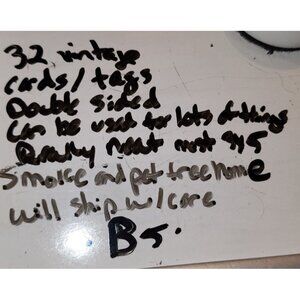 32 vintage
cards / tags
Double sided
can be used for lots of things
Really neat most 3x5
Smoke and pet free home
will ship w/ care
B5.